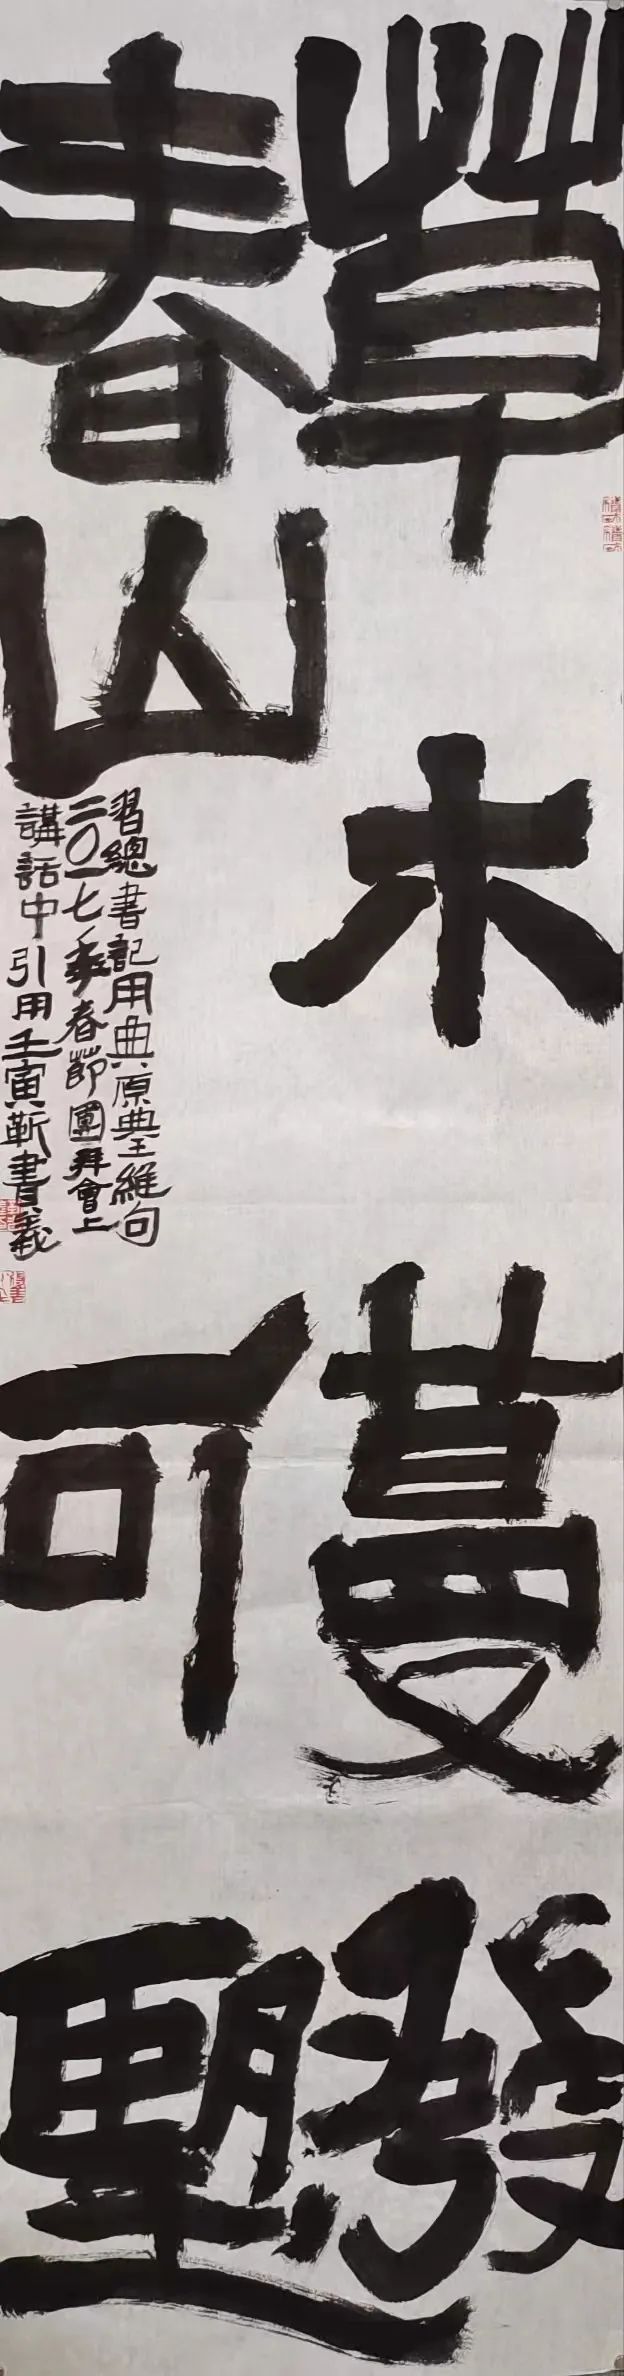 草木蔓發
春山可望
習總書記用典原典王維句
二〇一七年春節團拜會上
講話中引用壬寅靳書義